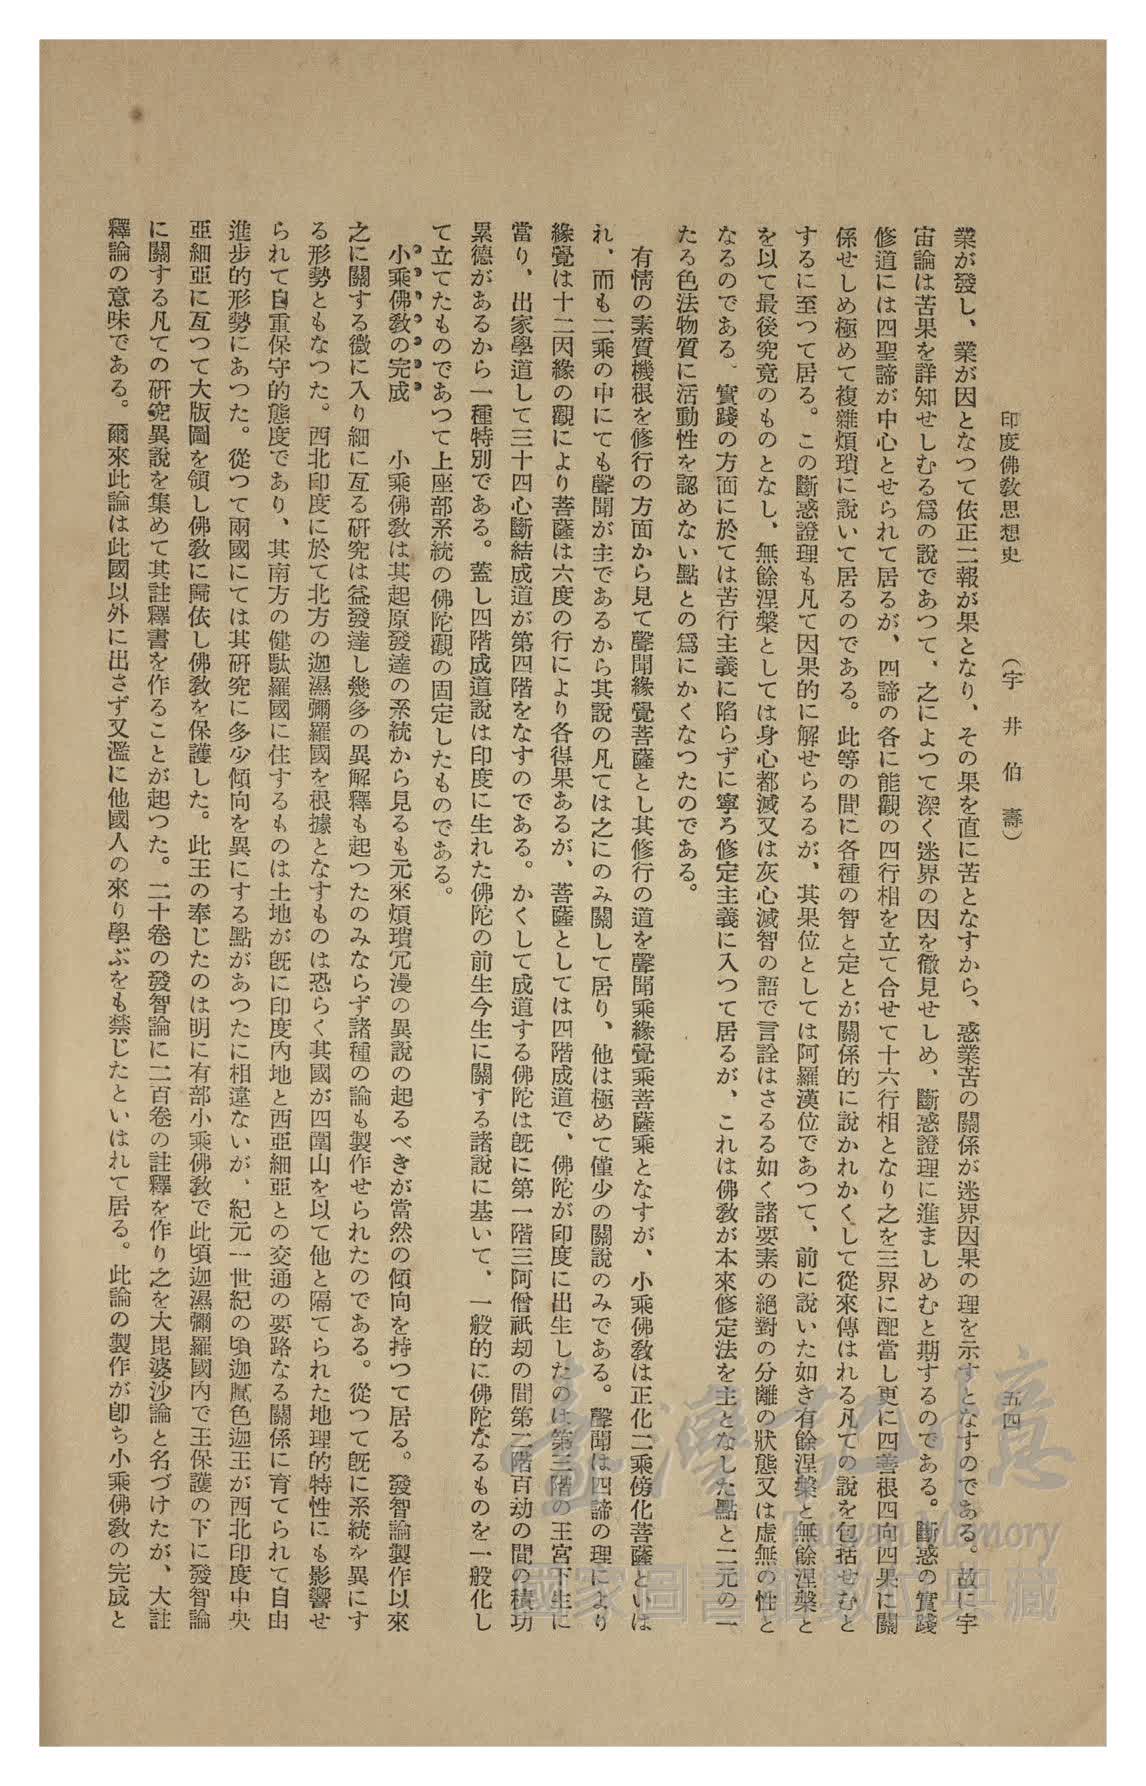 印度佛敎思想史　（宇井伯壽）　五四
業が發し、業が因となつて依正二報が果となり、その果を直に苦となすから、惑業苦の關係が迷界因果の理を示すとなすのである。故に宇
宙論は苦果を詳知せしむる爲の說であつて、之によつて深く迷界の因を徹見せしめ、斷惑證理に進ましめむと期するのである。斷惑の實踐
修道には四聖諦が中心とせられて居るが、四諦の各に能觀の四行相を立て合せて十六行相となり之を三界に配當し更に四善根四向四果に關
係せしめ極めて複雜煩瑣に說いて居るのである。此等の間に各種の智と定とが關係的に說かれかくして從來傳はれる凡ての說を包括せむと
するに至つて居る。この斷惑證理も凡て因果的に解せらるるが、其果位としては阿羅漢位であつて、前に說いた如き有餘涅槃と無餘涅槃と
を以て最後究竟のものとなし、無餘涅槃としては身心都滅又は灰心滅智の語で言詮はさるる如く諸要素の絕對の分離の狀態又は虛無の性と
なるのである。實踐の方面に於ては苦行主義に陷らずに寧ろ修定主義に入つて居るが、これは佛敎が本來修定法を主となした點と二元の一
たる色法物質に活動性を認めない點との爲にかくなつたのである。
有情の素質機根を修行の方面から見て聲聞緣覺菩薩とし其修行の道を聲聞乘緣覺乘菩薩乘となすが、小乘佛敎は正化二乘傍化菩薩といは
れ、而も二乘の中にても聲聞が主であるから其說の凡ては之にのみ關して居り、他は極めて僅少の關說のみである。聲聞は四諦の理により
緣覺は十二因緣の觀により菩薩は六度の行により各得果あるが、菩薩としては四階成道で、佛陀が印度に出生したのは第三階の王宮下生に
當り、出家學道して三十四心斷結成道が第四階をなすのである。かくして成道する佛陀は旣に第一階三阿僧祇劫の間第二階百劫の間の積功
累德があるから一種特別である。蓋し四階成道說は印度に生れた佛陀の前生今生に關する諸說に基いて、一般的に佛陀なるものを一般化し
て立てたものであつて上座部系統の佛陀觀の固定したものである。
小乘佛敎の完成　小乘佛敎は其起原發達の系統から見るも元來煩瑣冗漫の異說の起るべきが當然の傾向を持つて居る。發智論製作以來
之に關する微に入り細に亙る硏究は益發達し幾多の異解釋も起つたのみならず諸種の論も製作せられたのである。從つて旣に系統を異にす
る形勢ともなつた。西北印度に於て北方の迦濕彌羅國を根據となすものは恐らく其國が四圍山を以て他と隔てられた地理的特性にも影響せ
られて自重保守的態度であり、其南方の健馱羅國に住するものは土地が旣に印度內地と西亞細亞との交通の要路なる關係に育てられて自由
進步的形勢にあつた。從つて兩國にては其硏究に多少傾向を異にする點があつたに相違ないが、紀元一世紀の頃迦膩色迦王が西北印度中央
亞細亞に亙つて大版圖を領し佛敎に歸依し佛敎を保護した。此王の奉じたのは明に有部小乘佛敎で此頃迦濕彌羅國內で王保護の下に發智論
に關する凡ての硏究異說を集めて其註釋書を作ることが起つた。二十卷の發智論に二百卷の註釋を作り之を大毘婆沙論と名づけたが、大註
釋論の意味である。爾來此論は此國以外に出さず又濫に他國人の來り學ぶをも禁じたといはれて居る。此論の製作が卽ち小乘佛敎の完成と
臺灣記憶
Taiwan Memory
國家圖書館數位典藏